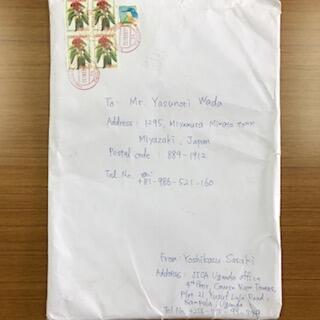 To Mr. Yasunori Wada
Address : 1295, Miyamura Mimata
Miyazaki, Japan
Postal code : 889-1912
Tel No.
+81-986-521-160
From Yoshikazu Sasaki
Address : JICA Uganda office
4th floor, Course View Towers,
Plot 21, Yusuf Lule Road,
Kampala, Uganda
Tel No.